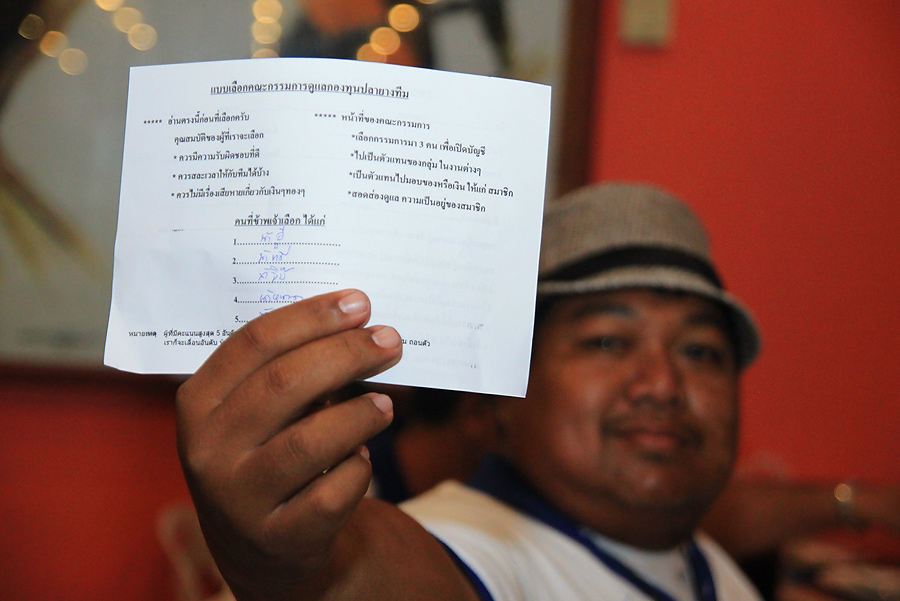 แบบเลือกคณะกรรมการดูแลกองทุนปลายางทีม
***** อ่านตรงนี้ก่อนที่เลือกครับ
คุณสมบัติของผู้ที่เราจะเลือก
* ควรมีความรับผิดชอบที่ดี
* ควรสละเวลาให้กับทีมได้บ้าง
* ควรไม่มีเรื่องเสียหายเกี่ยวกับเงินๆทองๆ
***** หน้าที่ของคณะกรรมการ
*เลือกกรรมการมา 3 คน เพื่อเปิดบัญชี
*ไปเป็นตัวแทนของกลุ่ม ในงานต่างๆ
*เป็นตัวแทนไปมอบของหรือเงิน ให้แก่ สมาชิก
*สอดส่องดูแล ความเป็นอยู่ของสมาชิก
คนที่ข้าพเจ้าเลือก ได้แก่
1
2
3
4
5
หมายเหตุ ผู้ที่มีคะแนนสูงสุด 5 อันดับ
เราก็จะเลื่อนอันดับ ถอนตัว